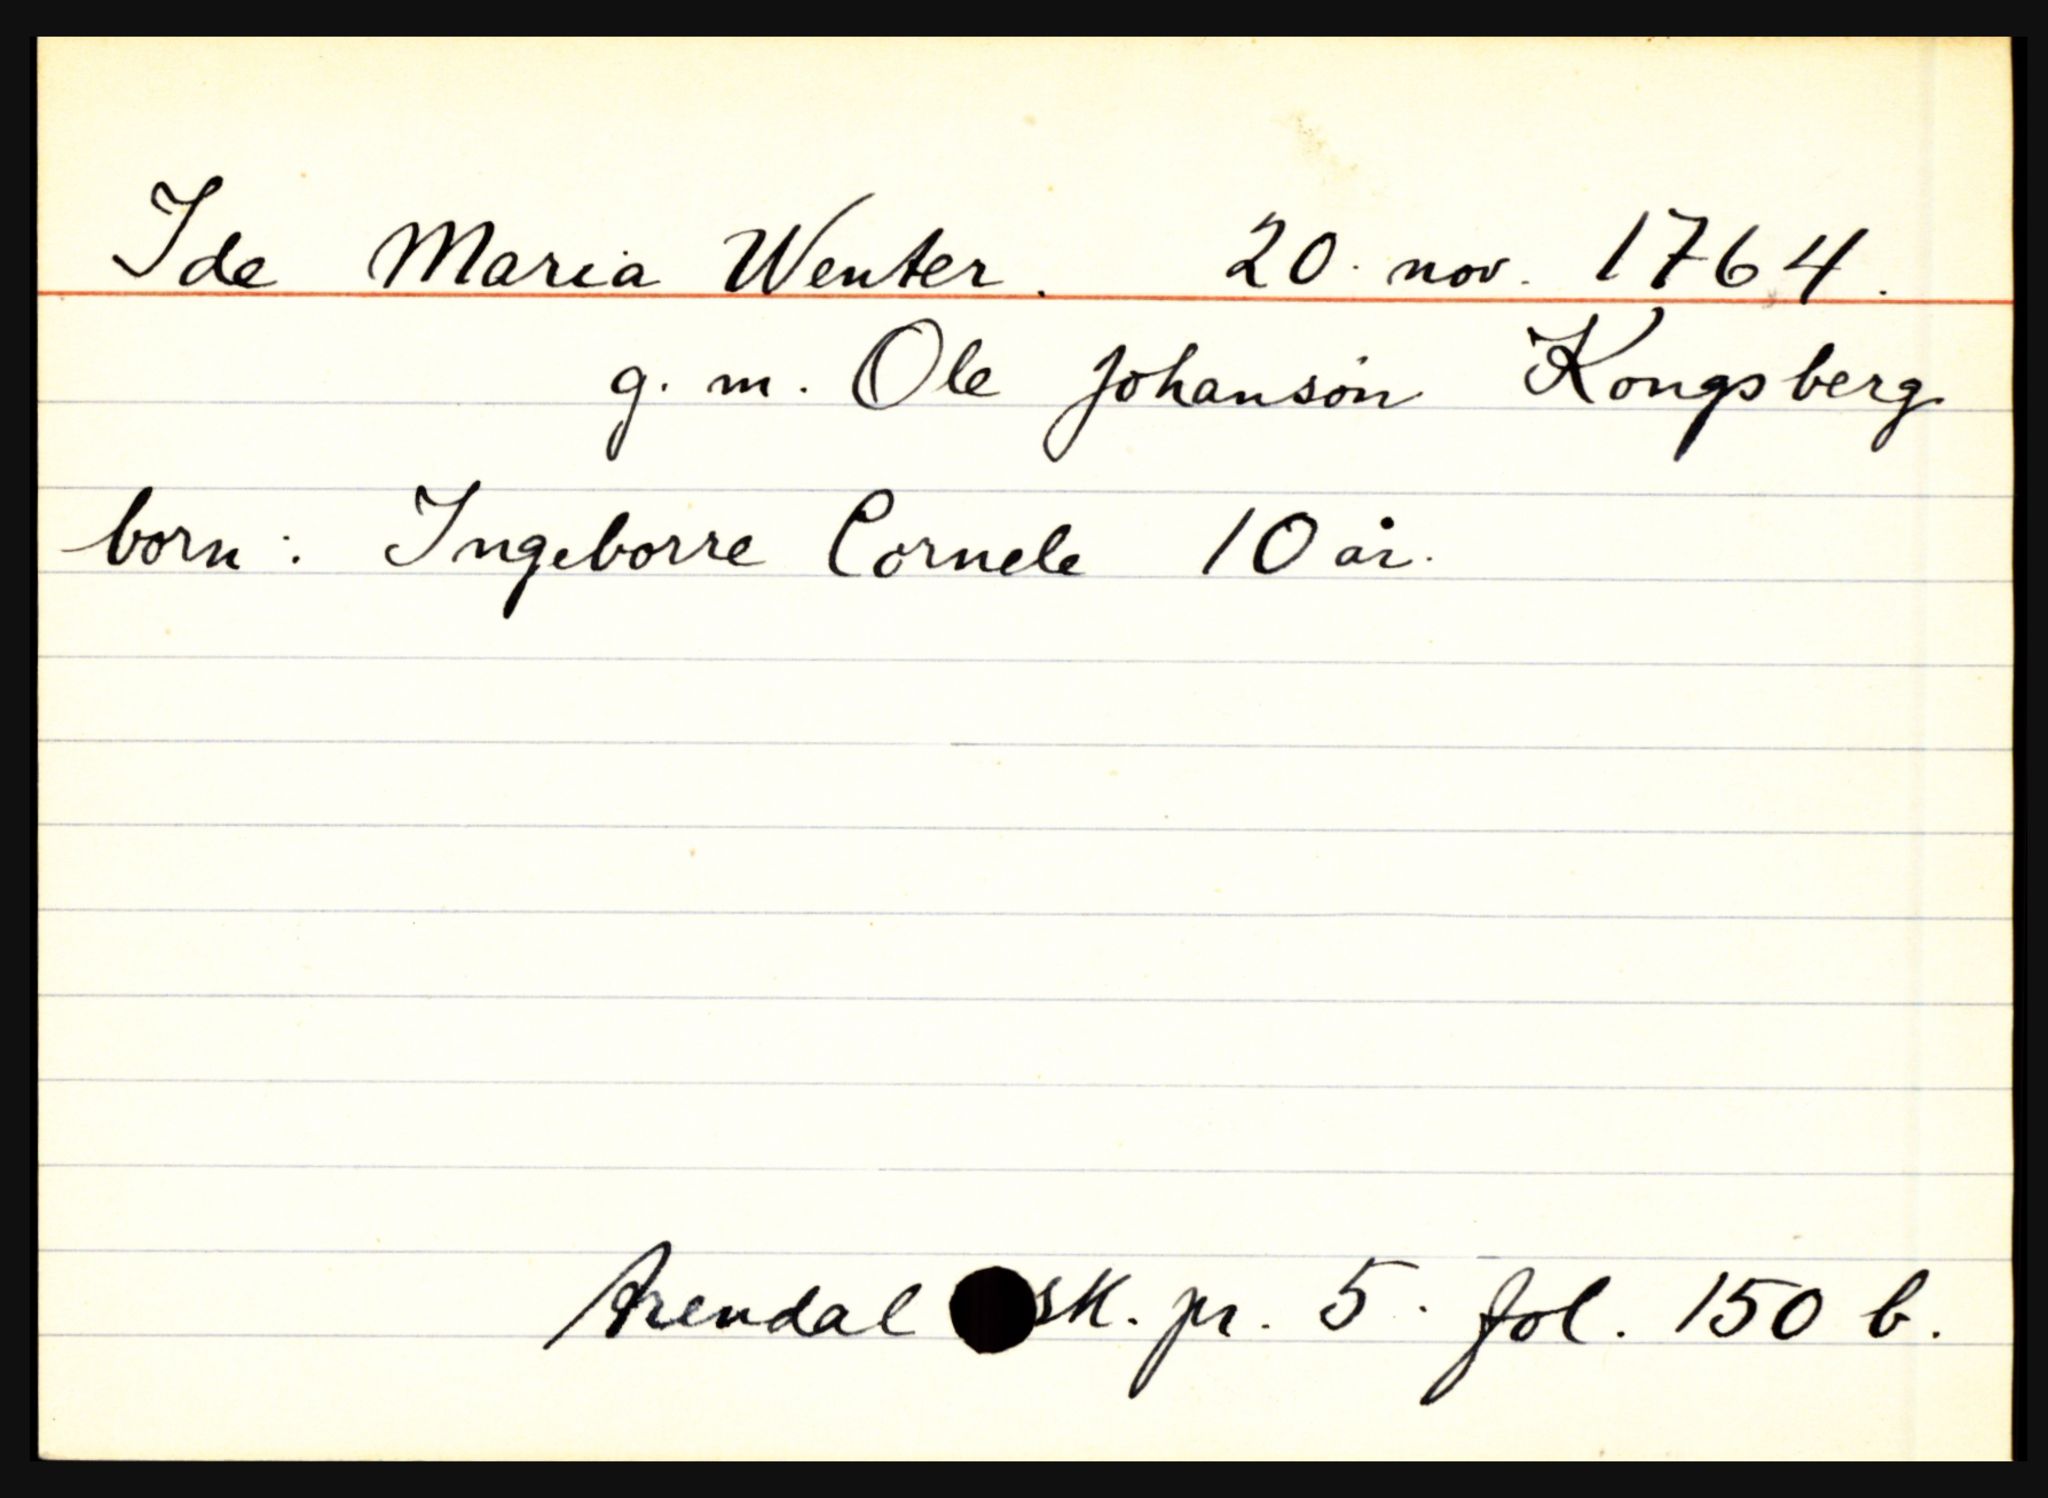 Ide Maria Wenter. 20. nov. 1764.
g. m. Ole Johanson Kongsberg
born: Ingeborre Cornele 10 år.
Arendal sk. pr. 5. fol. 150 b.